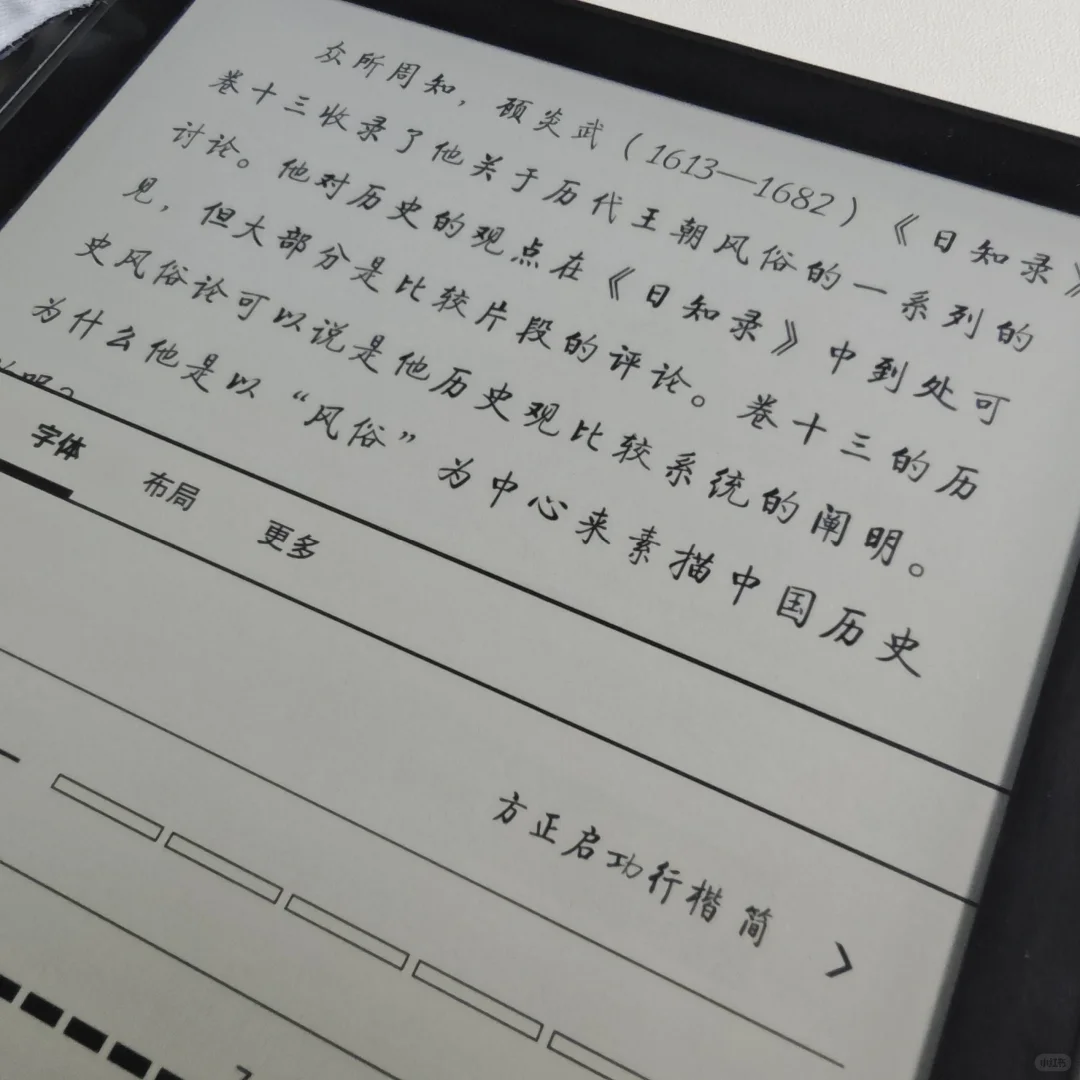 众所周知，顾炎武（1613—1682）《日知录》
卷十三收录了他关于历代王朝风俗的一系列的
讨论。他对历史的观点在《日知录》中到处可
见，但大部分是比较片段的评论。卷十三的历
史风俗论可以说是他历史观比较系统的阐明。
为什么他是以“风俗”为中心来素描中国历史
字体
布局
更多
方正启功行楷 简
小红书